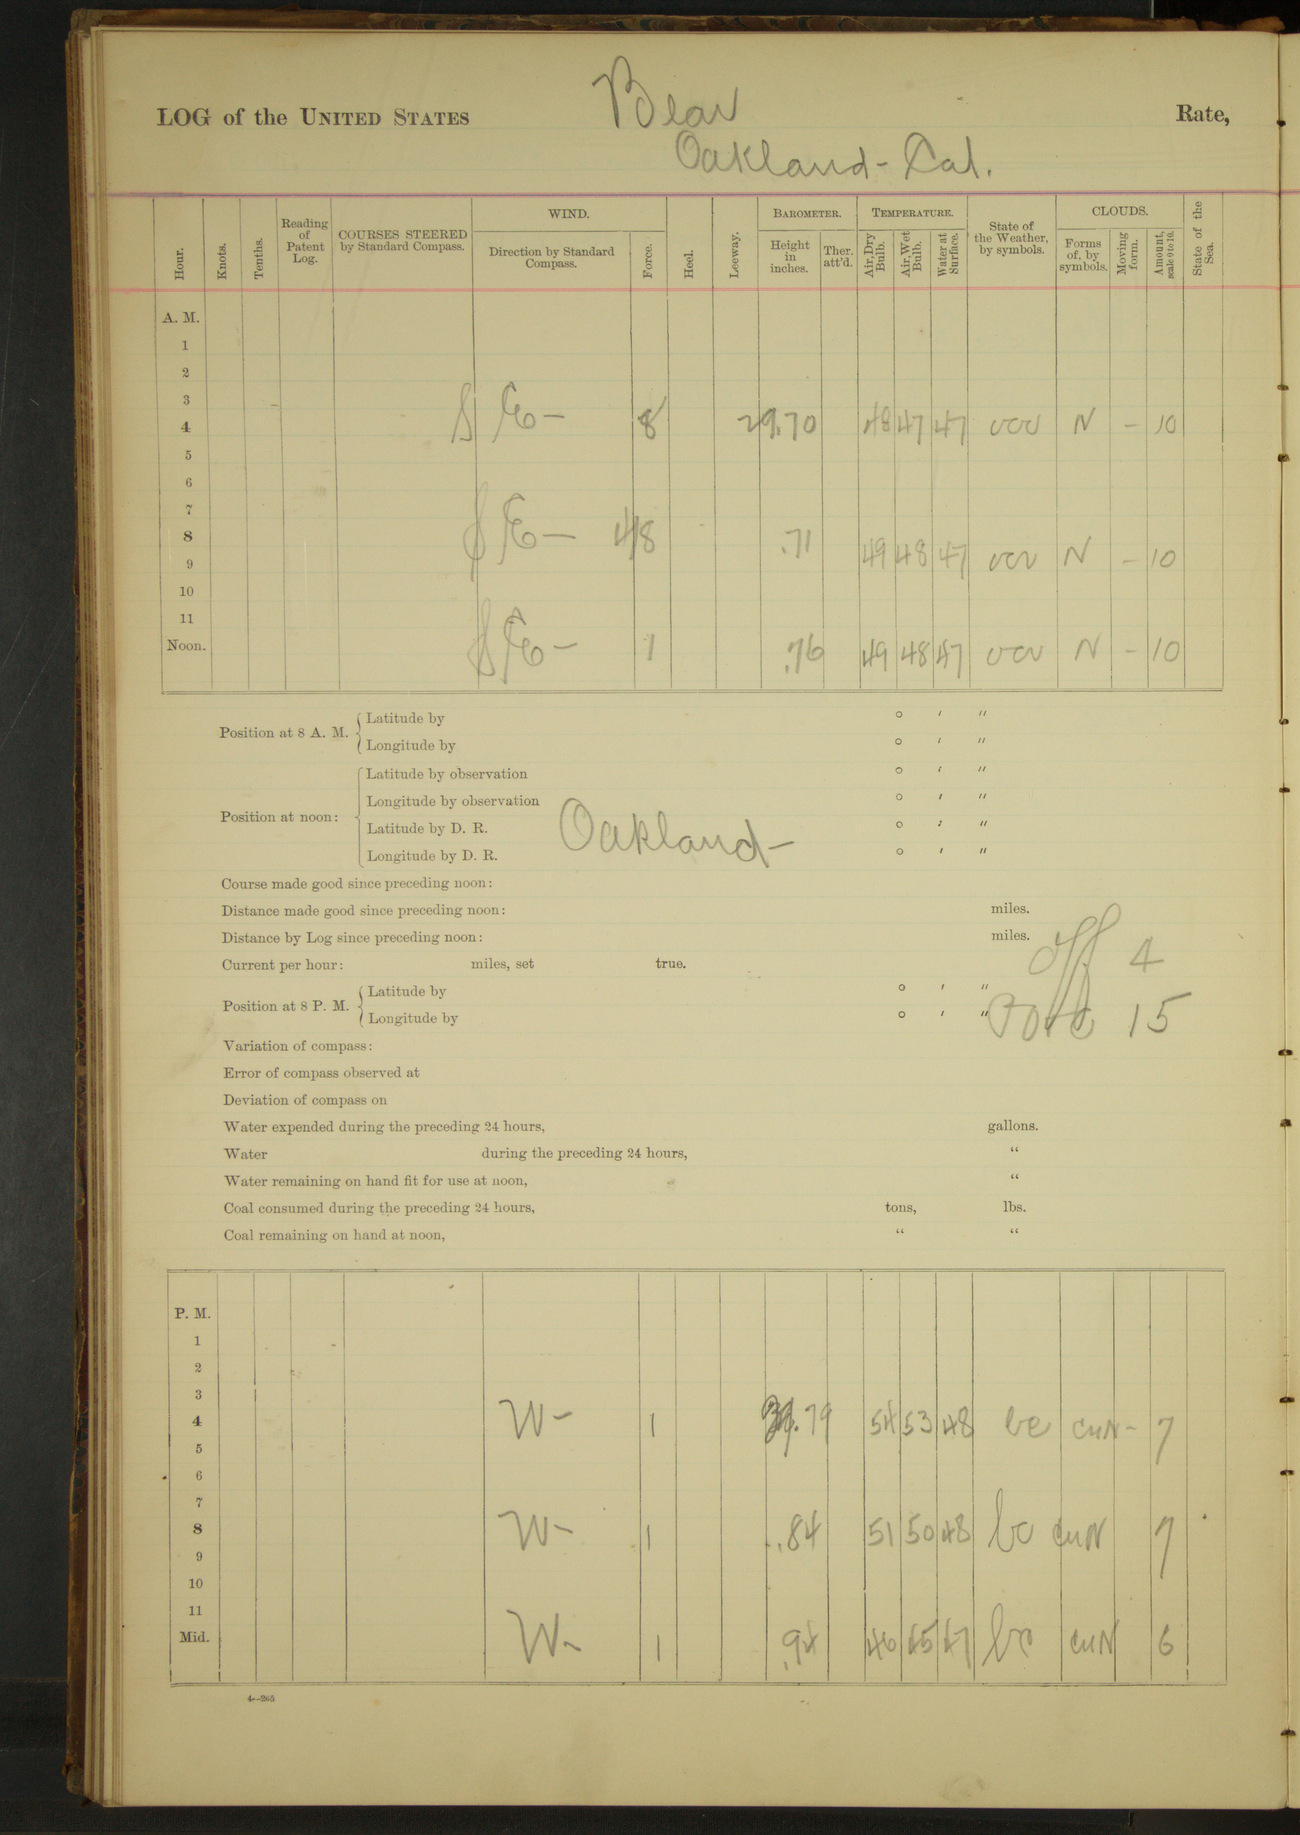 LOG of the UNITED STATES Bear Rate,
Oakland - Cal.
Hour. Knots. Tenths. Reading of Patent Log. COURSES STEERED by Standard Compass. WIND. Direction by Standard Compass. Force. Heel. Leeway. BAROMETER. Height in inches. Ther. att'd. TEMPERATURE. Air, Dry Bulb. Air, Wet Bulb. Water at Surface. State of the Weather, by symbols. CLOUDS. Forms of, by symbols. Moving form. Amount, scale 0 to 10. State of the Sea.
A. M.
1
2
3
4 S E - 8 29.70 48 47 47 N - 10
5
6
7
8 S E - 8 .71 49 48 47 N - 10
9
10
11
Noon. S E - 1 .76 49 48 47 N - 10
Position at 8 A. M. Latitude by ° ′ ″
Longitude by ° ′ ″
Position at noon: Latitude by observation ° ′ ″
Longitude by observation ° ′ ″
Oakland -
Latitude by D. R. ° ′ ″
Longitude by D. R. ° ′ ″
Course made good since preceding noon:
Distance made good since preceding noon: miles.
Distance by Log since preceding noon: miles.
Current per hour: miles, set true. Off 4
Position at 8 P. M. Latitude by ° ′ ″
Longitude by ° ′ ″ 15
Variation of compass:
Error of compass observed at
Deviation of compass on
Water expended during the preceding 24 hours, gallons.
Water during the preceding 24 hours, “
Water remaining on hand fit for use at noon, “
Coal consumed during the preceding 24 hours, tons, lbs.
Coal remaining on hand at noon, “ “
P. M.
1
2
3
4 W - 1 29.79 54 53 48 bc cuN - 7
5
6
7
8 W - 1 .84 51 50 48 bc cuN 7
9
10
11
Mid. W - 1 .94 46 45 47 bc cuN 6
4—265